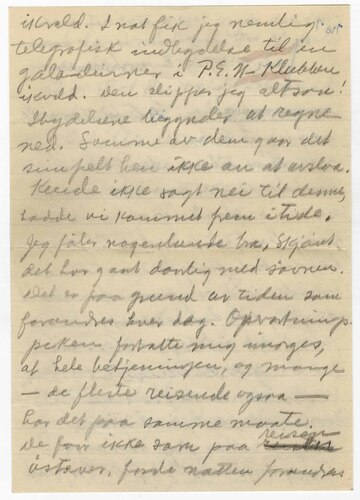 ikveld. I nat fik jeg nemlig
telegrafisk indbydelse til en
galadinner i P.E.N-Klubben
ikveld. Den slipper jeg altsaa!
Indbydelsene begynder at regne
ned. Somme av dem gaar det
simpelt hen ikke an at avslaa.
Kunde ikke sagt nei til denne,
hadde vi kommet frem itide.
Jeg føler nogenlunde bra, skjønt
det har gaat daarlig med søvnen.
Det er paa grund av tiden som
forandres hver dag. Opvartnings
piken fortalte mig imorges,
at hele betjeningen, og mange
— de fleste reisende ogsaa —
har det paa samme maate.
De sover ikke som paa reisen
østover, fordi natten forandres